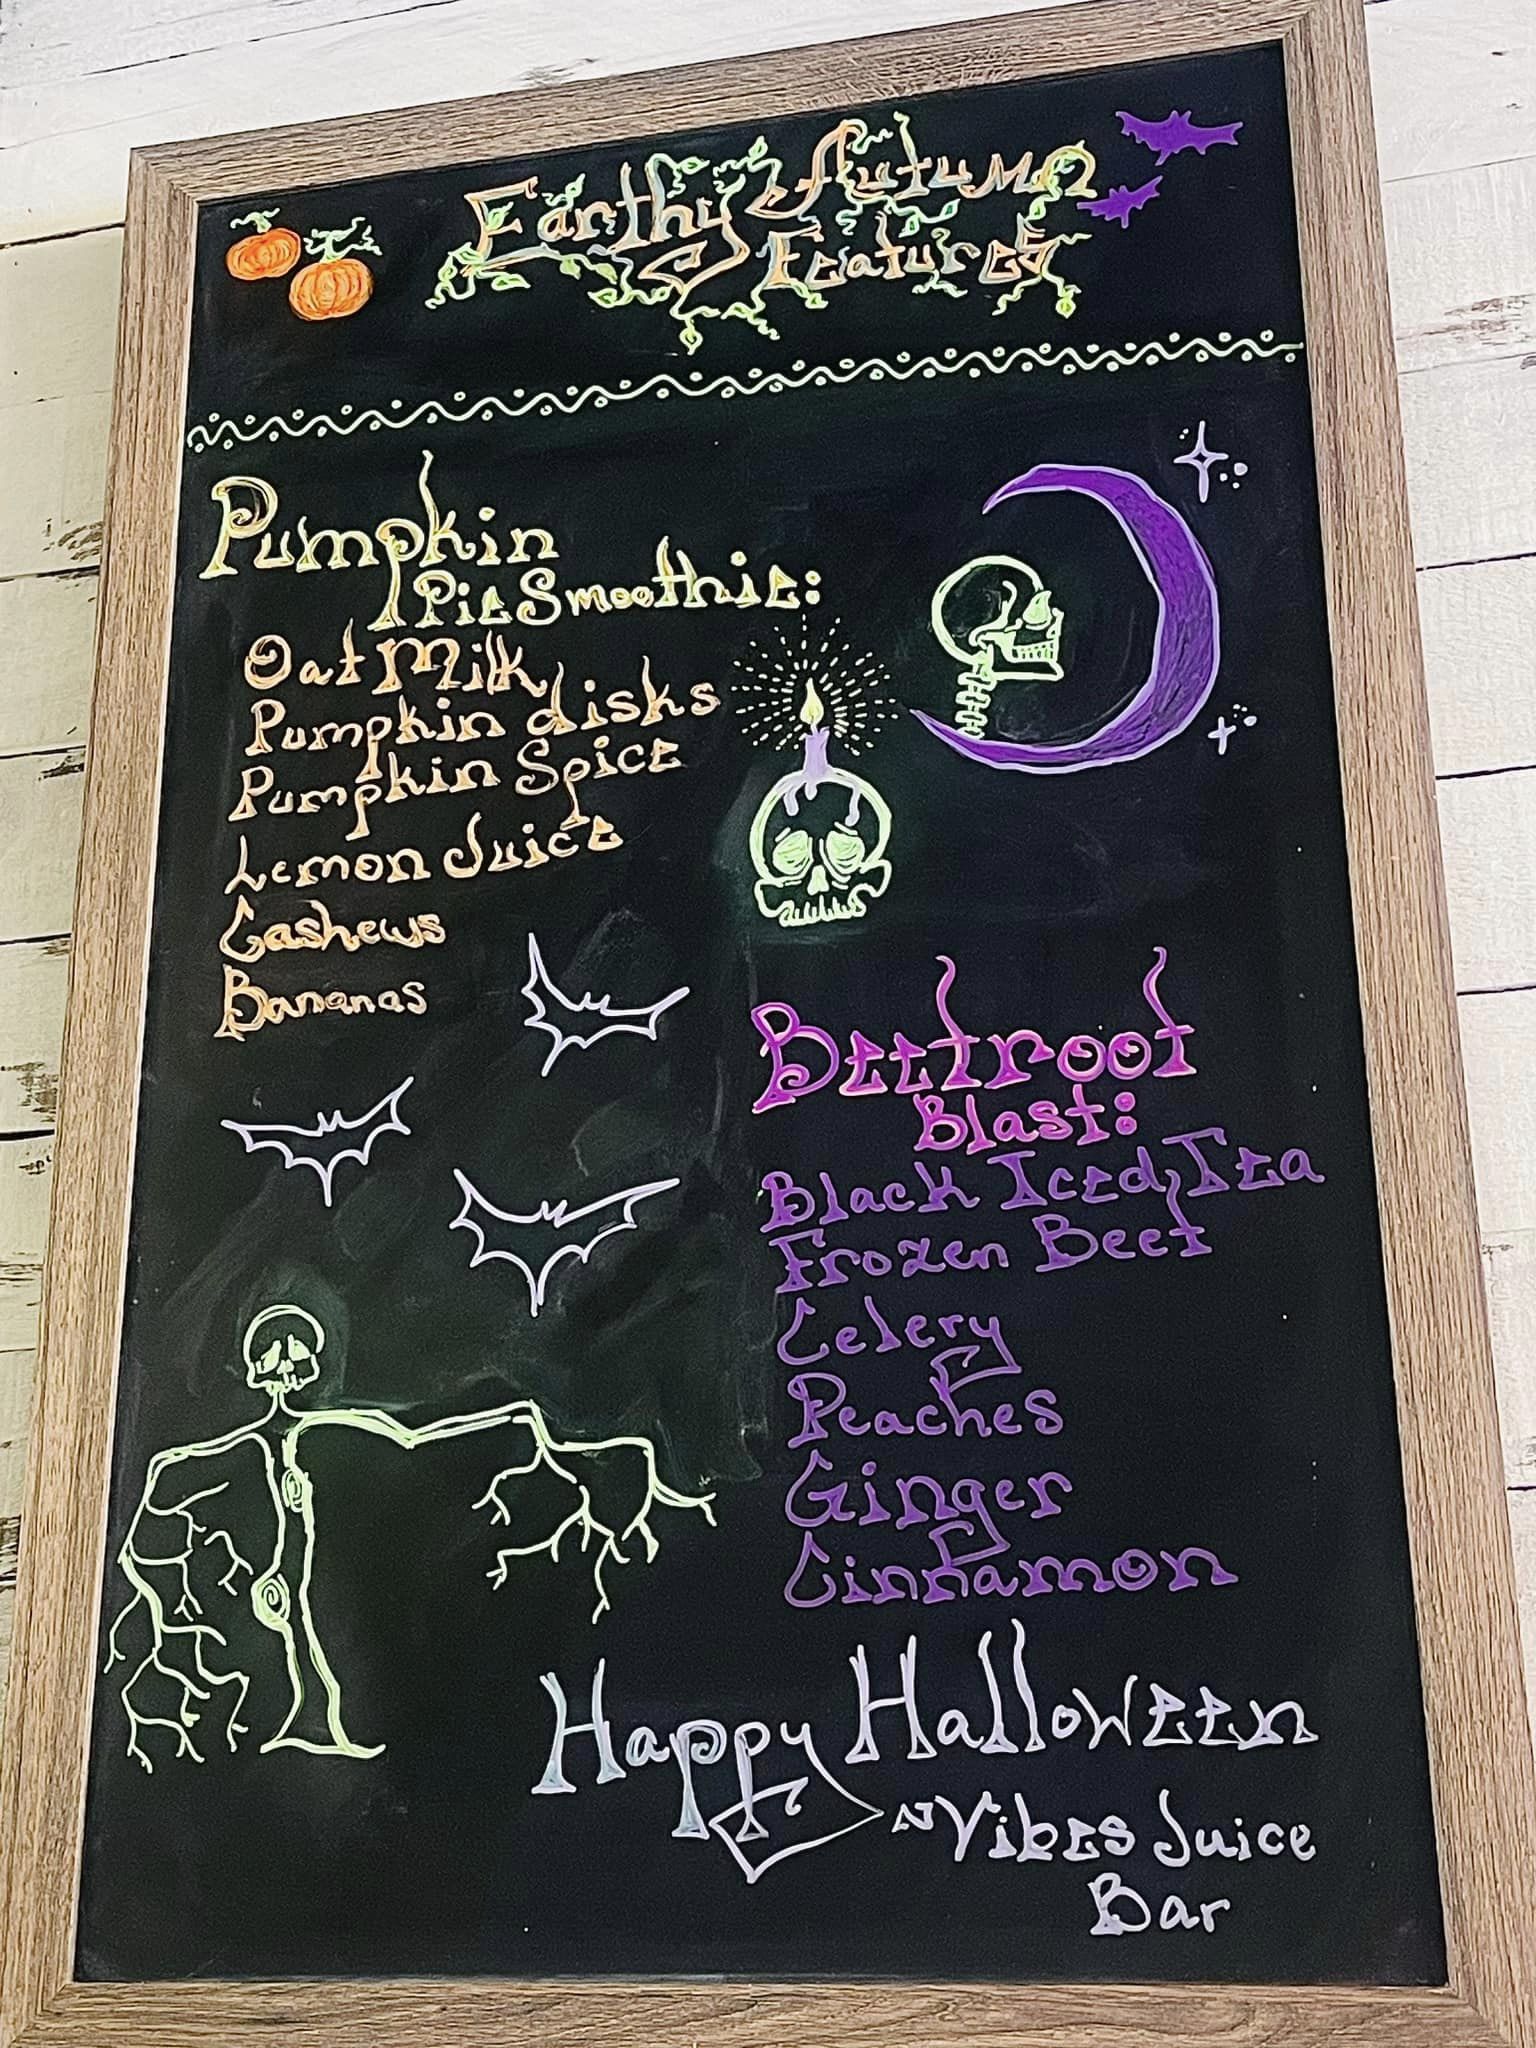 Earthy Autumn
Features
Pumpkin
Pie Smoothie:
Oat Milk
Pumpkin disks
Pumpkin Spice
Lemon Juice
Cashews
Bananas
Beetroot
Blast:
Black Iced Tea
Frozen Beet
Celery
Peaches
Ginger
Cinnamon
Happy Halloween
~Vibes Juice
Bar